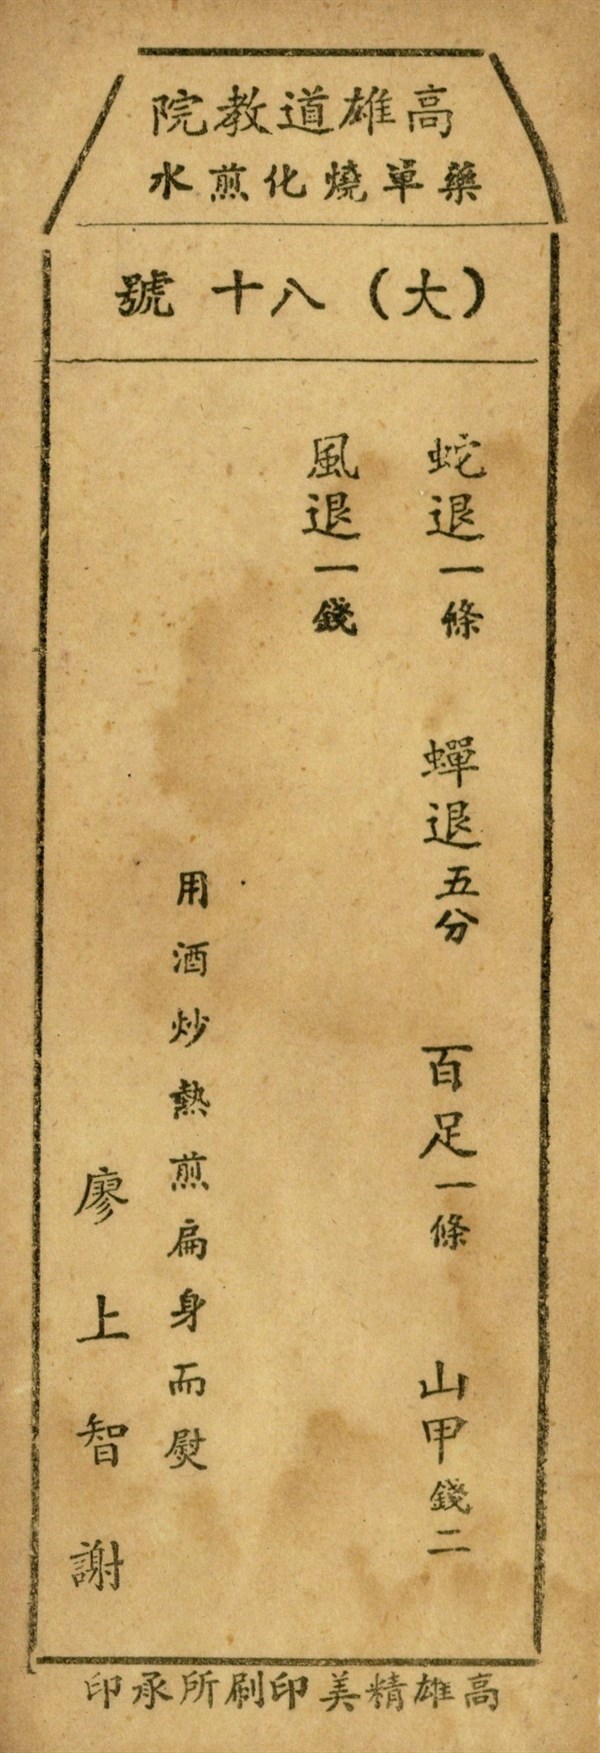 高雄道教院
藥單燒化煎水
(大)八十號
蛇退一條 蟬退五分 百足一條 山甲錢二
風退一錢
用酒炒熱煎扁身而熨
廖上智謝
高雄精美印刷所承印